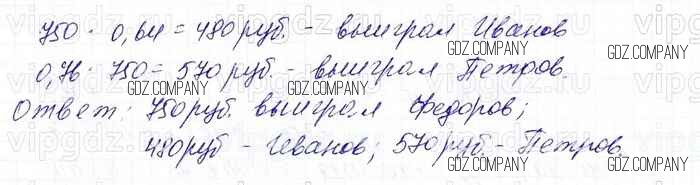 750 · 0,64 = 480 руб. - выиграл Иванов
GDZ.COMPANY
GDZ.COMPANY
0,76 · 750 = 570 руб. - выиграл Петров.
GDZ.COMPANY
GDZ.COMPANY
Ответ: 750 руб. выиграл Федоров;
480 руб - Иванов; 570 руб - Петров.
GDZ.COMPANY
GDZ.COMPANY